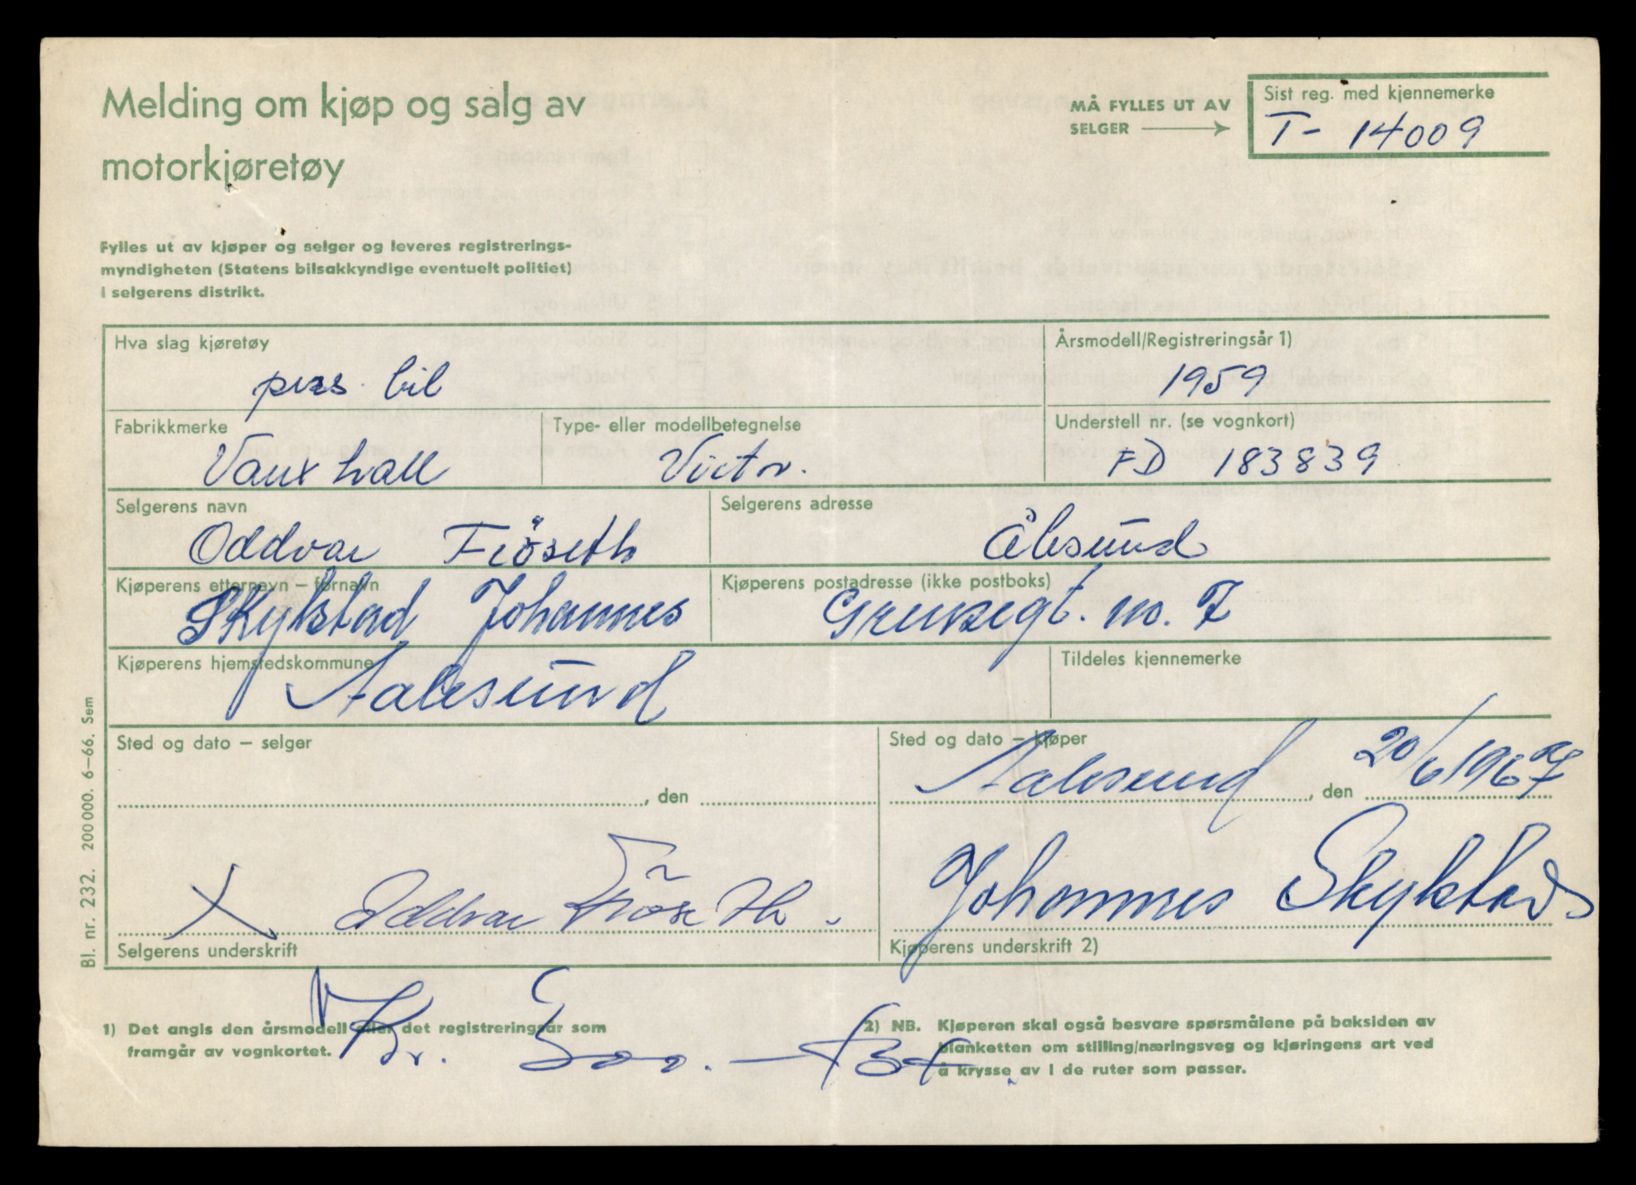 Melding om kjøp og salg av
motorkjøretøy
MÅ FYLLES UT AV
SELGER
Sist reg. med kjennemerke
T- 14009
Fylles ut av kjøper og selger og leveres registrerings-
myndigheten (Statens bilsakkyndige eventuelt politiet)
i selgerens distrikt.
Hva slag kjøretøy
pers. bil
Årsmodell/Registreringsår 1)
1959
Fabrikkmerke
Vauxhall
Type- eller modellbetegnelse
Victor.
Understell nr. (se vognkort)
FD 183839
Selgerens navn
Oddvar Fiöseth
Selgerens adresse
Ålesund
Kjøperens etternavn – fornavn
Skylstad Johannes
Kjøperens postadresse (ikke postboks)
Grensegt. no. 7
Kjøperens hjemstedskommune
Aalesund
Tildeles kjennemerke
Sted og dato – selger
, den
Sted og dato – kjøper
Aalesund, den 20/6 1967
X Oddvar Fiöseth.
Selgerens underskrift
Johannes Skylstad
Kjøperens underskrift 2)
Bl. nr. 232. 200 000. 6–66. Sem
Kr.
1) Det angis den årsmodell eller det registreringsår som
framgår av vognkortet.
2) NB. Kjøperen skal også besvare spørsmålene på baksiden av
blanketten om stilling/næringsveg og kjøringens art ved
å krysse av i de ruter som passer.